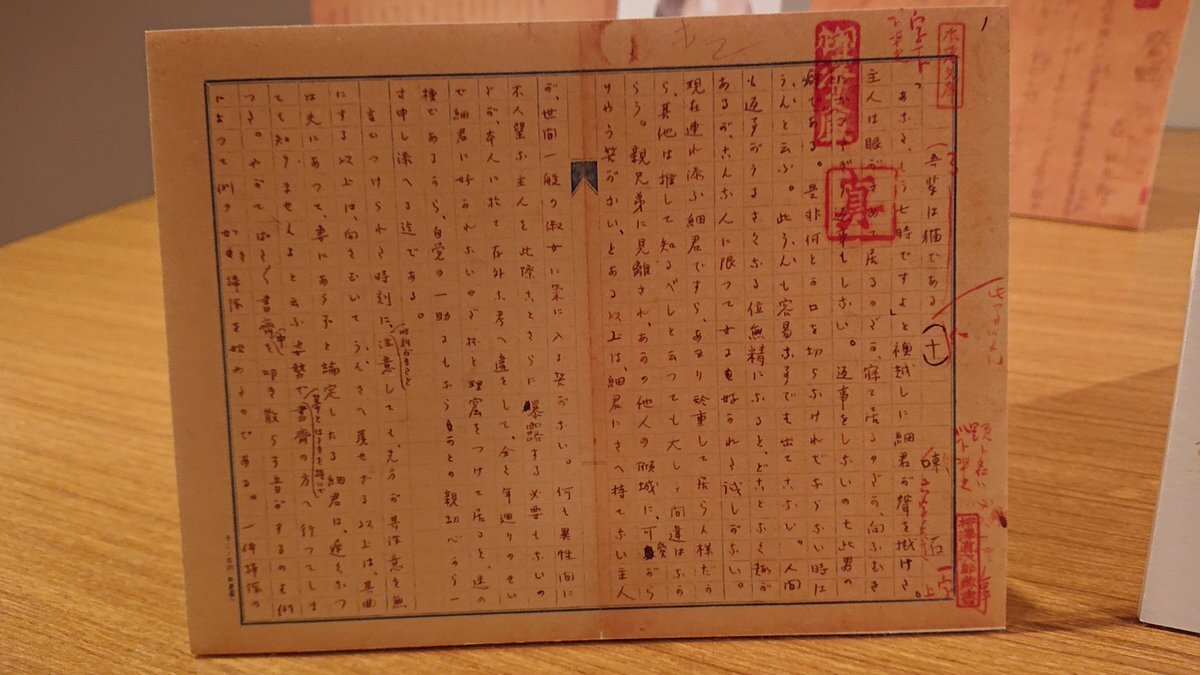 (吾輩は猫である)(十)
漱石
「あなた、もう七時ですよ」と襖越しに細君が聲を掛けた。
主人は眼がさめて居るのだか、寐て居るのだか向ふむき
返事もしない。返事をしないのは此男の
癖である。是非何とか口を切らなければならない時は
うんと云ふ。此うんも容易な事では出てこない。人間
も返事がうるさくなる位無精になると、どことなく趣が
あるが、こんな人に限つて女に好かれた試しがない。
現在連れ添ふ細君ですら、あまり珍重して居らん樣だか
ら、其他は推して知るべしと云つても大した間違はなか
らう。親兄弟に見離され、あかの他人の傾城に、可愛がら
りやう筈がない、とある以上は、細君にさへ持てない主人
が、世間一般の淑女に氣に入る筈がない。何も異性間に
不人望な主人を此際ことさらに暴露する必要もないの
だが、本人に於て存外な考へ違をして、全く年廻りのせい
で細君に好かれないのだ抔と理窟をつけて居ると、迷の
種であるから、自覺の一助にもならうかとの親切心から一
寸申し添へる迄である。
言ひつけられた時刻に、注意しても、先方が其注意を無
にする以上は、向をむいてうんさへ發せざる以上は、其曲
は夫にあつて、妻にあらずと論定したる細君は、遲くなつ
ても知りませんよと云ふ姿勢で書齋の方へ行つてしま
つた。やがてぱたぱた書齋中を叩き散らす音がするのは例
によつて例の如き掃除を始めたのである。一体掃除の
眞